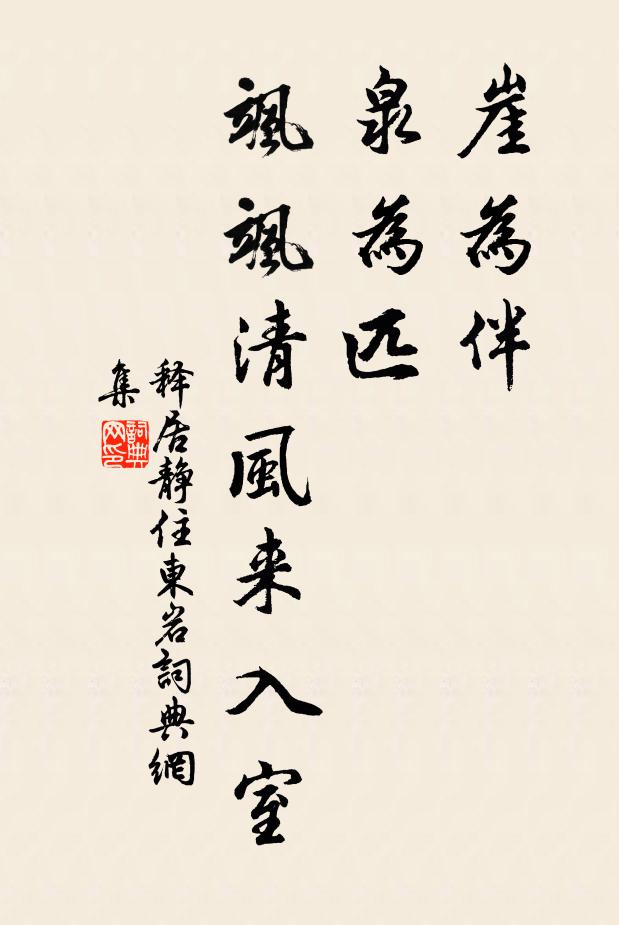 崖為伴
泉為匹
颯颯清風来入室
释居静住東岩詞典網
集
詞典
网印